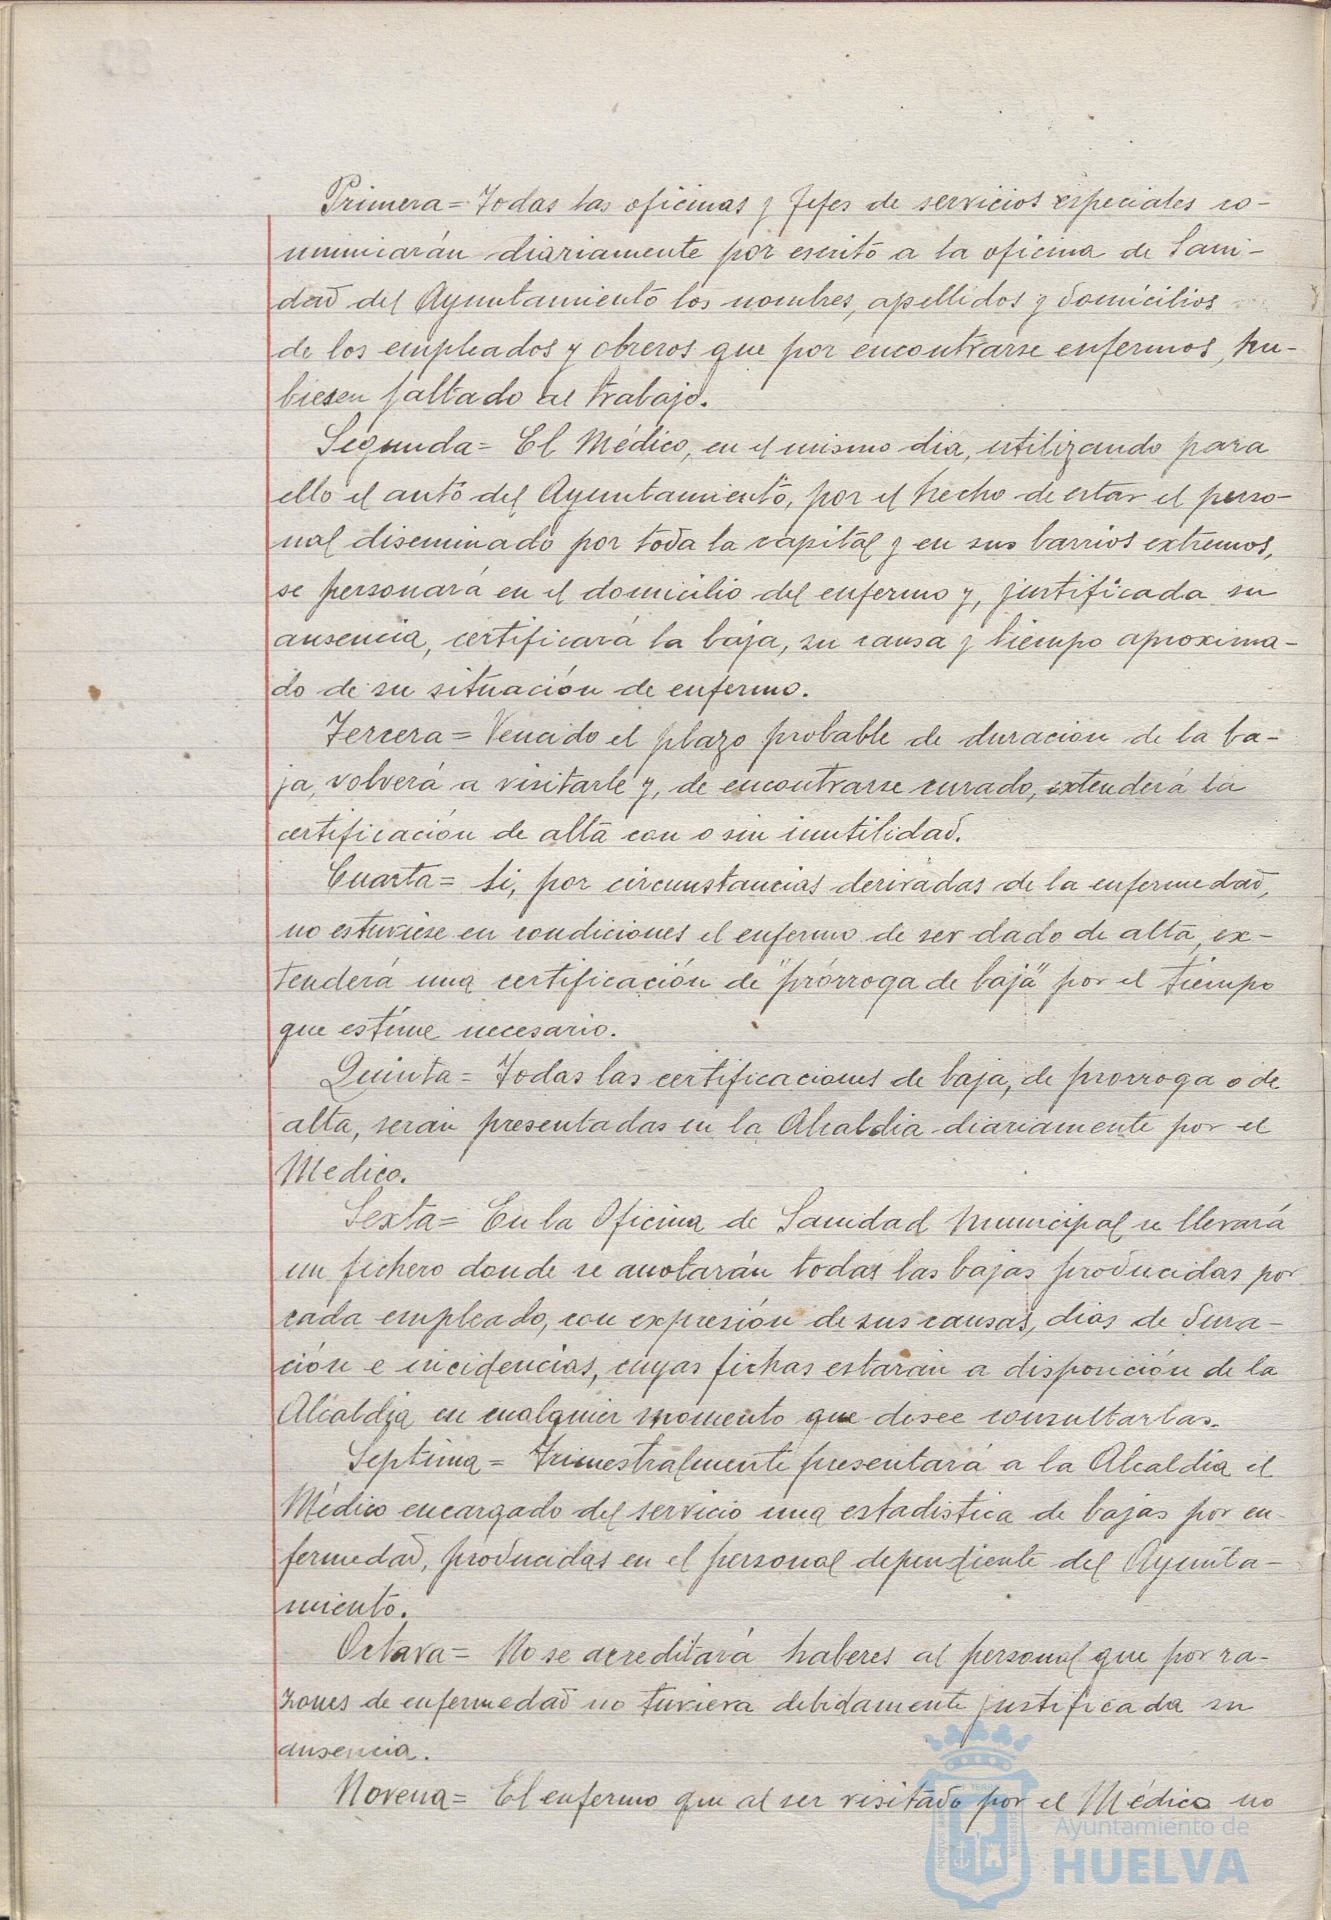 Primera= Todas las oficinas y Jefes de servicios especiales co-
municarán diariamente por escrito a la oficina de Sani-
dad del Ayuntamiento los nombres, apellidos y domicilios
de los empleados y obreros que por encontrarse enfermos, hu-
biesen faltado al trabajo.
Segunda= El Médico, en el mismo dia, utilizando para
ello el auto del Ayuntamiento, por el hecho de estar el perso-
nal diseminado por toda la capital y en sus barrios extremos,
se personará en el domicilio del enfermo y, justificada su
ausencia, certificará la baja, su causa y tiempo aproxima-
do de su situación de enfermo.
Tercera= Vencido el plazo probable de duracion de la ba-
ja, volverá a visitarle y, de encontrarse curado, extenderá la
certificación de alta con o sin inutilidad.
Cuarta= Si, por circunstancias derivadas de la enfermedad,
no estuviese en condiciones el enfermo de ser dado de alta, ex-
tenderá una certificación de "prórroga de baja" por el tiempo
que estime necesario.
Quinta= Todas las certificaciones de baja, de prorroga o de
alta, serán presentadas en la Alcaldia diariamente por el
Medico.
Sexta= En la Oficina de Sanidad Municipal se llevará
un fichero donde se anotarán todas las bajas producidas por
cada empleado, con expresión de sus causas, dias de dura-
ción e incidencias, cuyas fichas estarán a disposición de la
Alcaldia en cualquier momento que desee consultarlas.
Septima= Trimestralmente presentará a la Alcaldia el
Médico encargado del servicio una estadistica de bajas por en-
fermedad, producidas en el personal dependiente del Ayunta-
miento.
Octava= No se acreditará haberes al personal que por ra-
zones de enfermedad no tuviera debidamente justificada su
ausencia.
Novena= El enfermo que al ser visitado por el Médico no
Ayuntamiento de
HUELVA